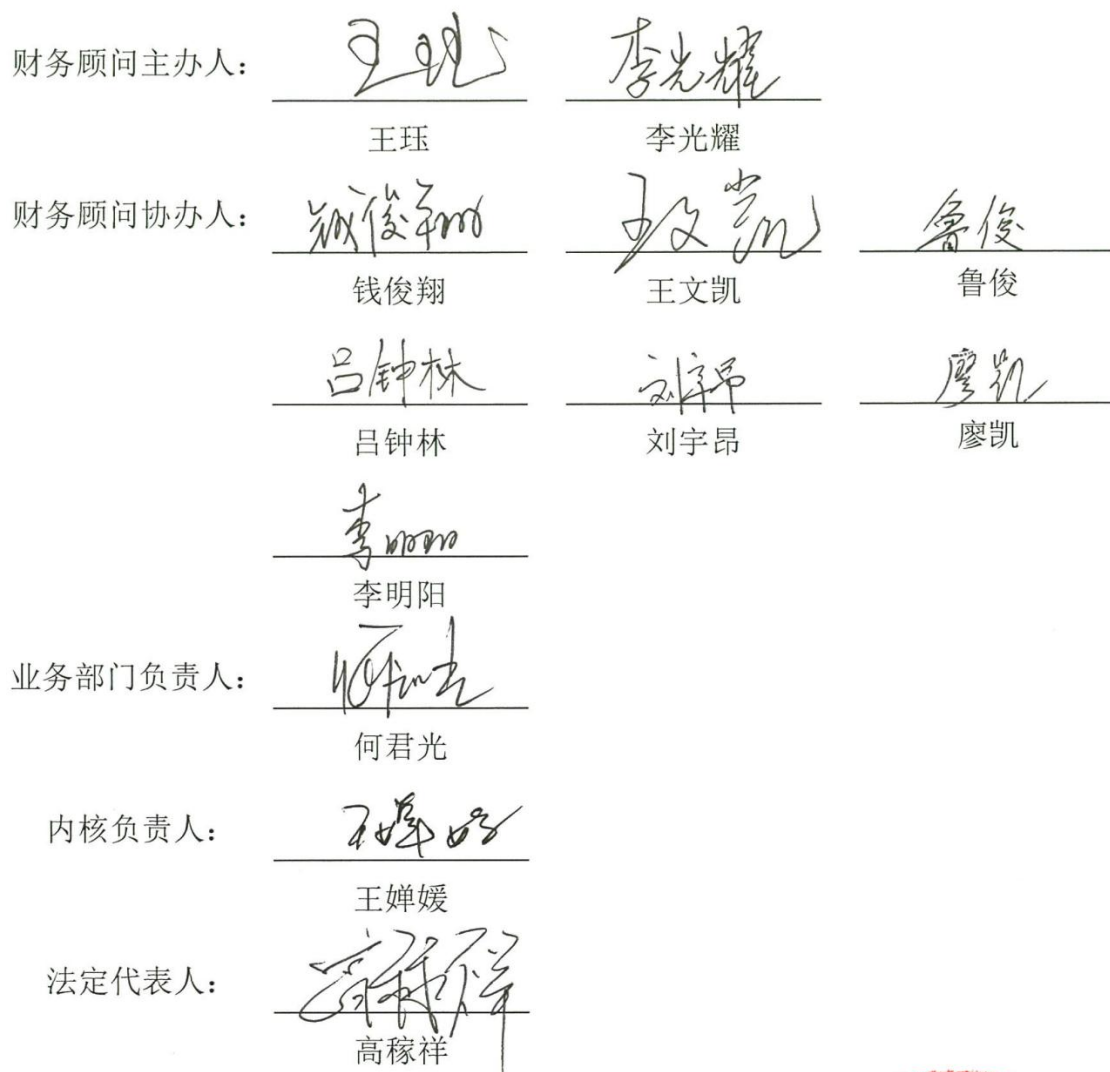 财务顾问主办人： 王珏 李光耀
王珏 李光耀
财务顾问协办人： 钱俊翔 王文凯 鲁俊
钱俊翔 王文凯 鲁俊
吕钟林 刘宇昂 廖凯
吕钟林 刘宇昂 廖凯
李明阳
李明阳
业务部门负责人： 何君光
何君光
内核负责人： 王婵媛
王婵媛
法定代表人： 高稼祥
高稼祥